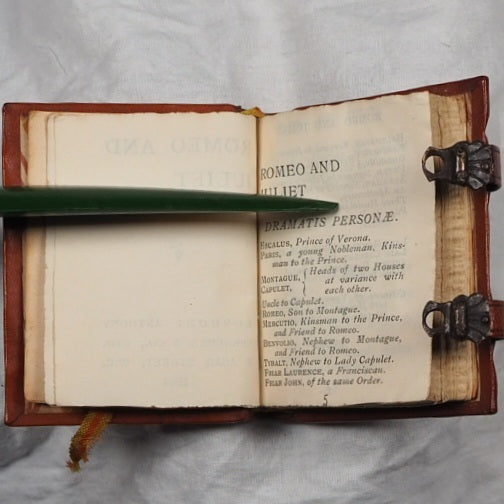 ROMEO AND
JULIET
DRAMATIS PERSONÆ.
ESCALUS, Prince of Verona.
PARIS, a young Nobleman, Kins-
man to the Prince.
MONTAGUE, Heads of two Houses
CAPULET, at variance with
each other.
Uncle to Capulet.
ROMEO, Son to Montague.
MERCUTIO, Kinsman to the Prince,
and Friend to Romeo.
BENVOLIO, Nephew to Montague,
and Friend to Romeo.
TYBALT, Nephew to Lady Capulet.
FRIAR LAURENCE, a Franciscan.
FRIAR JOHN, of the same Order.
5